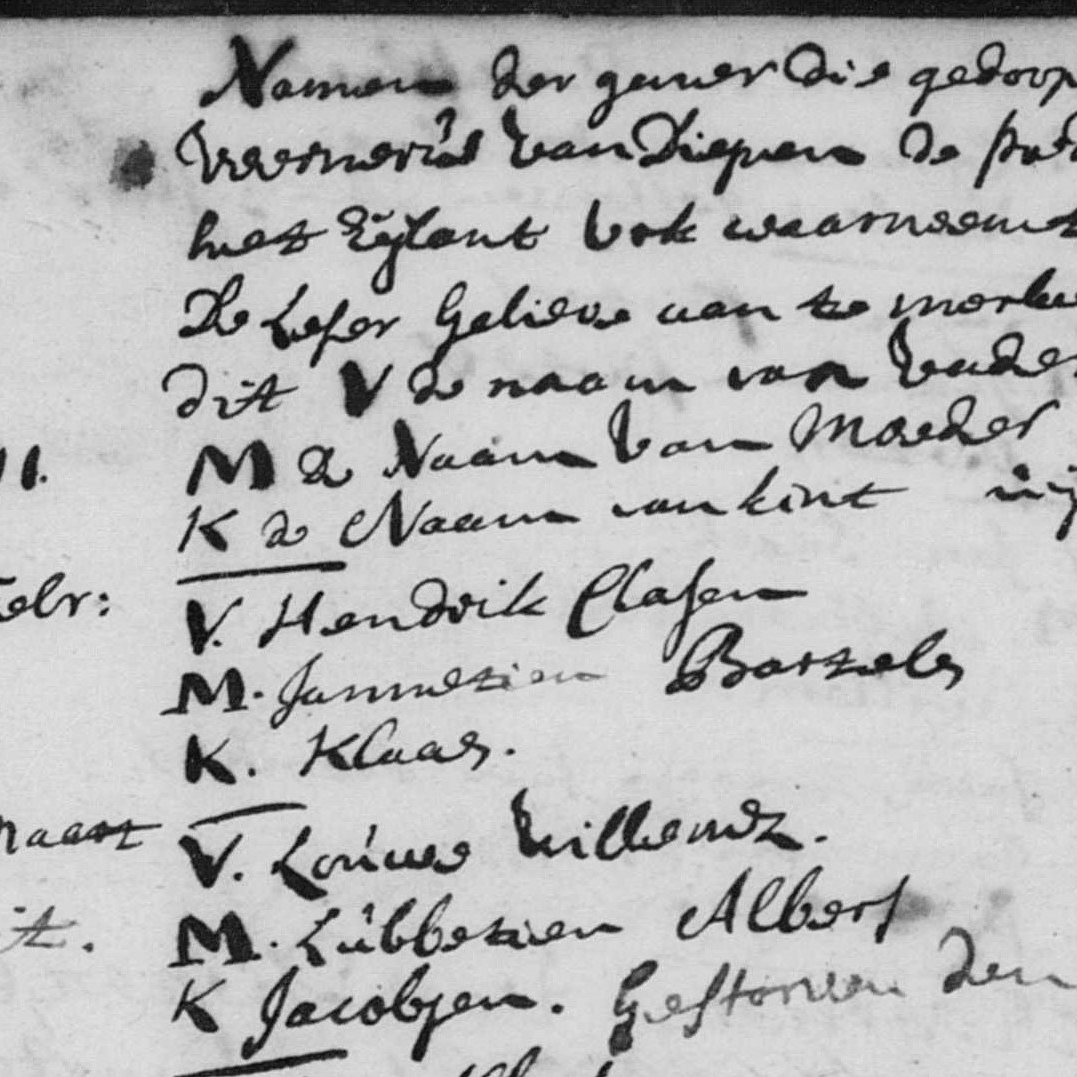 Namen der gener die gedoop
Wernerus van Diepen de pred
het Eÿlant ook waarneemt
De Leser Gelieve aan te merke
dit V de naam van Vader
11. M de Naam van Moeder
K de Naam van kint
Febr: V. Hendrik Clasen
M. Jannetien Bartels
K. Klaas.
maart V. Louwe Willems.
M. Lubbetien Albers
K Jacobjen. Gestorven den